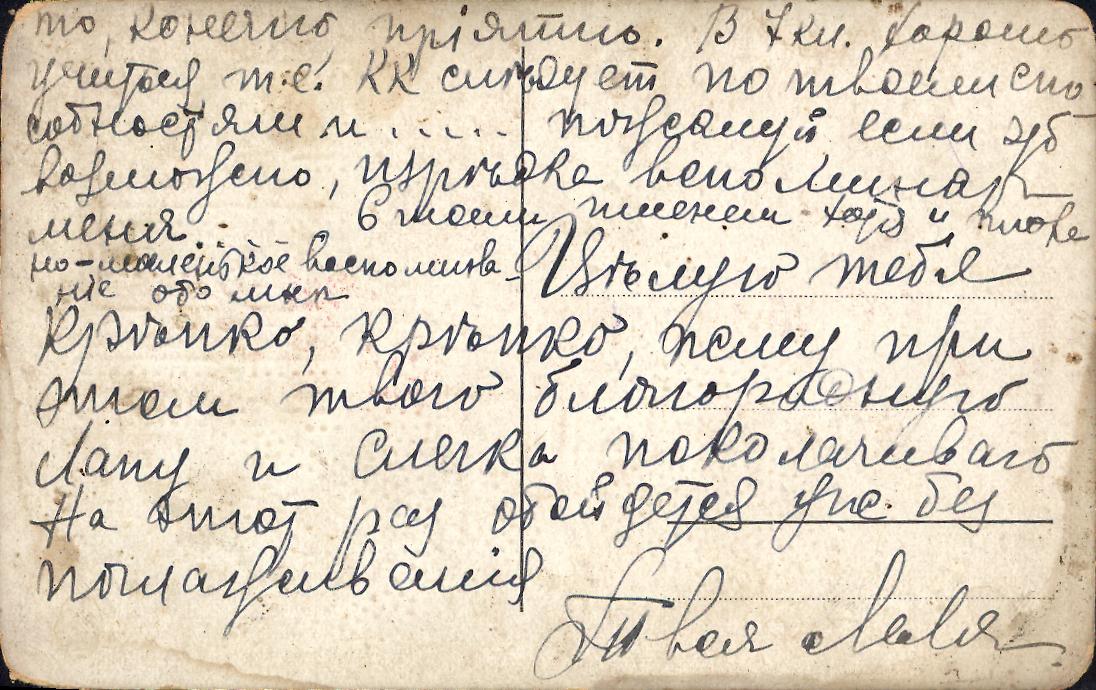 то, конечно, прiятно. В 7 кл. хорошо
учиться т.е. КК слѣдует по твоим спо
собностям и ..... пожалуй если
возможно, изрѣдка вспоминать
меня. С твоим именем хотя и плохе
но-маленькое воспомина
нiе обо мнѣ
Цѣлую тебя
крѣпко, крѣпко, жму при
этом твою благородную
лапу и слегка поколачиваю
На этот раз обойдется уже без
поглаживанiя
Твоя Леля